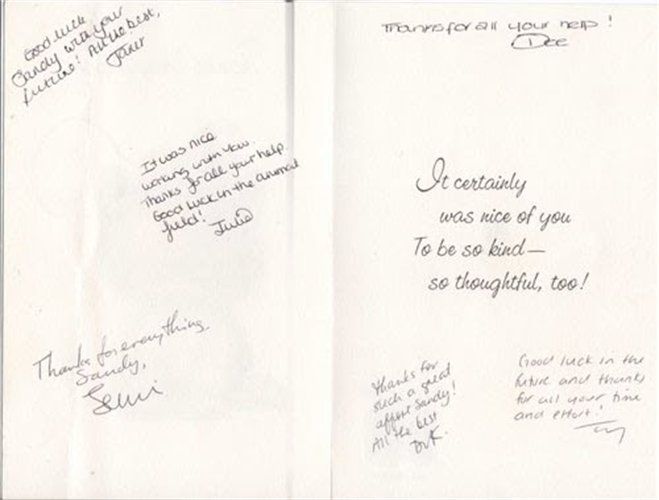 Good luck
Sandy with your
future! All the best,
Janet
It was nice
working with you.
Thanks for all your help
Good luck in the animal
field!
Julie
Thanks for everything,
Sandy,
Thanks for all your help!
Dee
It certainly
was nice of you
To be so kind—
so thoughtful, too!
Thanks for
such a great
affort Sandy!
All the best
Good luck in the
future and thanks
for all your time
and effort!